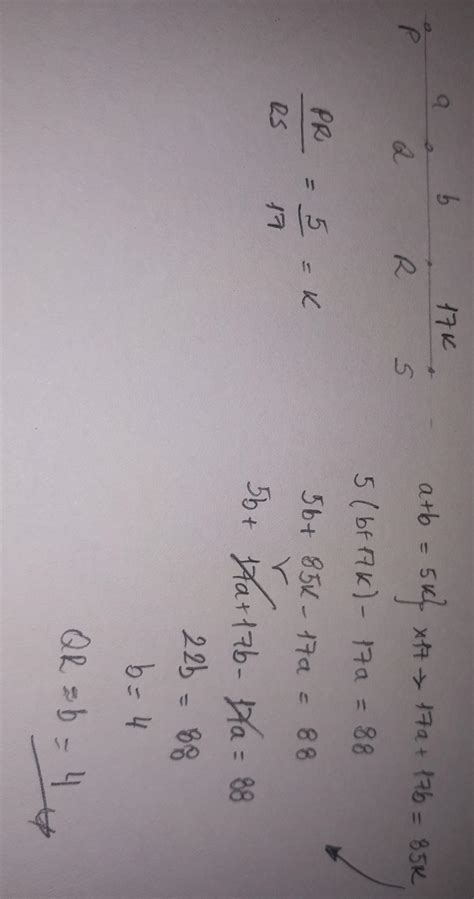 a b 17K
P Q R S
PR/QS = 5/17 = K
a+b = 5K} x17 → 17a + 17b = 85K
5(b+17K) - 17a = 88
5b + 85K - 17a = 88
5b + 17a + 17b - 17a = 88
22b = 88
b = 4
QR = b = 4